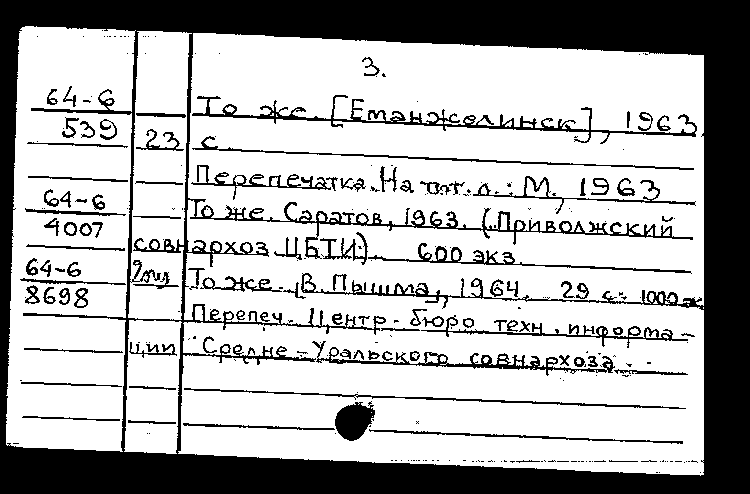 3.
64-6 То же. [Еманжелинск], 1963.
539 23 с.
Перепечатка. На тит. л.: М., 1963
64-6 То же. Саратов, 1963. (Приволжский
4007 совнархоз ЦБТИ). 600 экз.
64-6 То же. В. Пышма, 1964. 29 с. 1000 эк
8698 Перепеч. Центр. бюро техн. информа-
ции Средне-Уральского совнархоза.